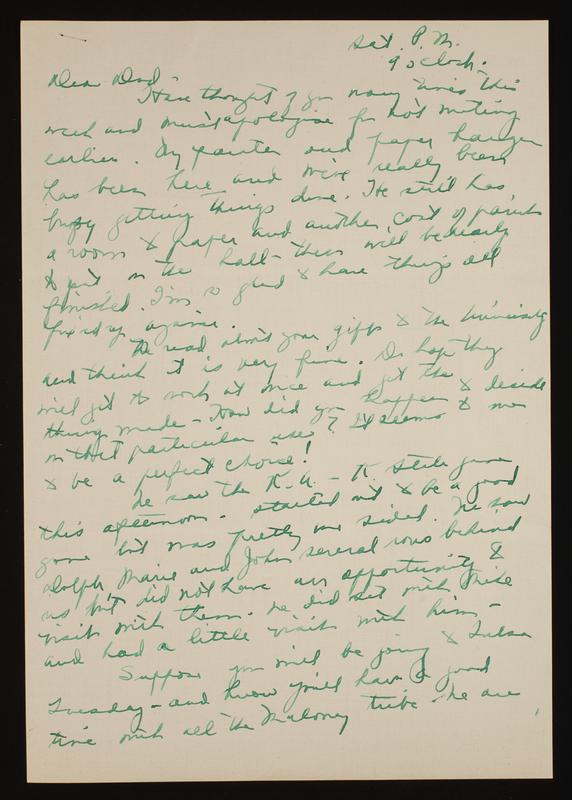 Sat. P.M.
9 o'clock.
Dear Dad -
Have thought of you many times this
week and must apologize for not writing
earlier. My painter and paper hanger
has been here and we've really been
busy getting things done. He still has
a room to paper and another coat of paint
to put on the hall - then will be nearly
finished. I'm so glad to have things all
fixed up again.
We read about your gift to the University
and think it is very fine. Do hope they
will get to work at once and get the
thing made - How did you happen to decide
on that particular use? It seems to me
to be a perfect choice!
We saw the K.U. - K. State game
this afternoon. started out to be a good
game but was pretty one sided. We saw
Dolph Marie and John several rows behind
us but did not have an opportunity to
visit with them. We did sit with Mike
and had a little visit with him -
Suppose you will be going to Tulsa
Tuesday - and know you'll have a good
time with all the Maloney tribe. We are